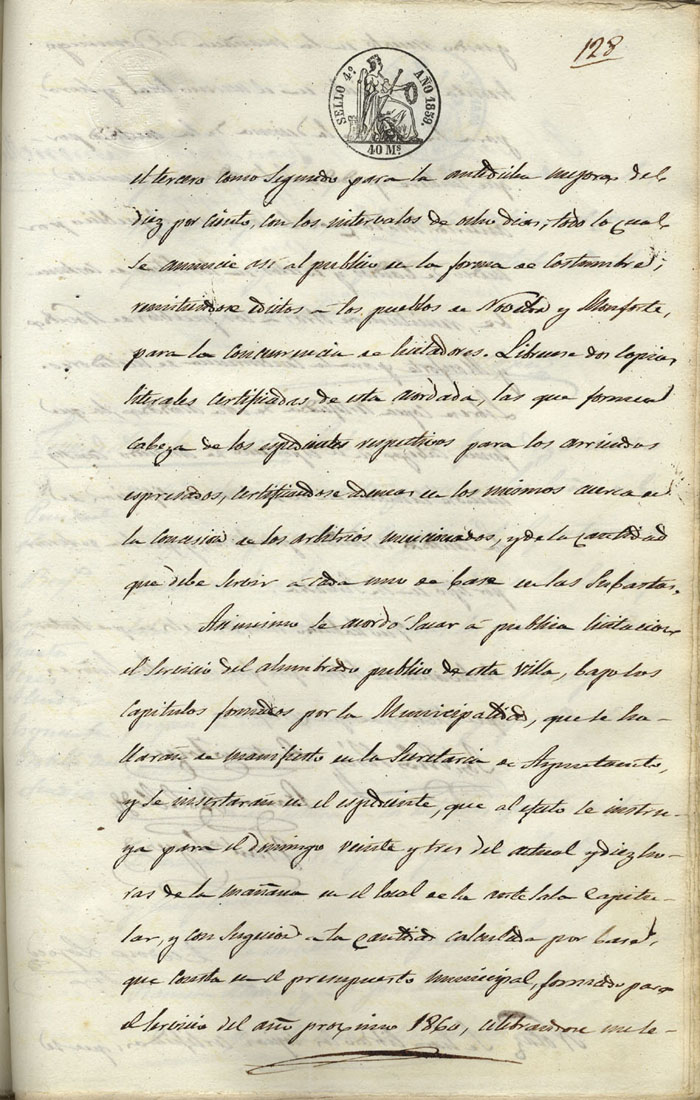 128
SELLO 4º AÑO 1859.
40 Mˢ
el tercero como Segundo para la antedicha mejora del
diez por ciento, con los intervalos de ocho dias; todo lo cual
se anuncie asi al publico en la forma de costumbre;
remitiendose editos à los pueblos de Novelda y Monforte,
para la concurrencia de licitadores. Librense dos copias
literales certificadas de esta acordada, las que formen
cabeza de los espedientes respectivos para los arriendos
espresados, certificandose ademas en los mismos acerca de
la concesion de los arbitrios mencionados, y de la cantidad
que debe servir à cada uno de base en las Subastas.
Asi mismo se acordó Sacar à publica licitacion
el Servicio del alumbrado publico de esta Villa, bajo los
Capitulos formados por la Municipalidad, que se ha-
llaran de manifiesto en la Secretaria de Ayuntamiento,
y se insertarán en el espediente, que al efecto se instru-
ya para el domingo veinte y tres del actual y diez ho-
ras de la mañana en el local de la antesala Capitu-
lar, y con Sugecion à la cantidad calculada por base,
que consta en el presupuesto municipal, formado para
el Servicio del año procsimo 1860, celebrandose un se-